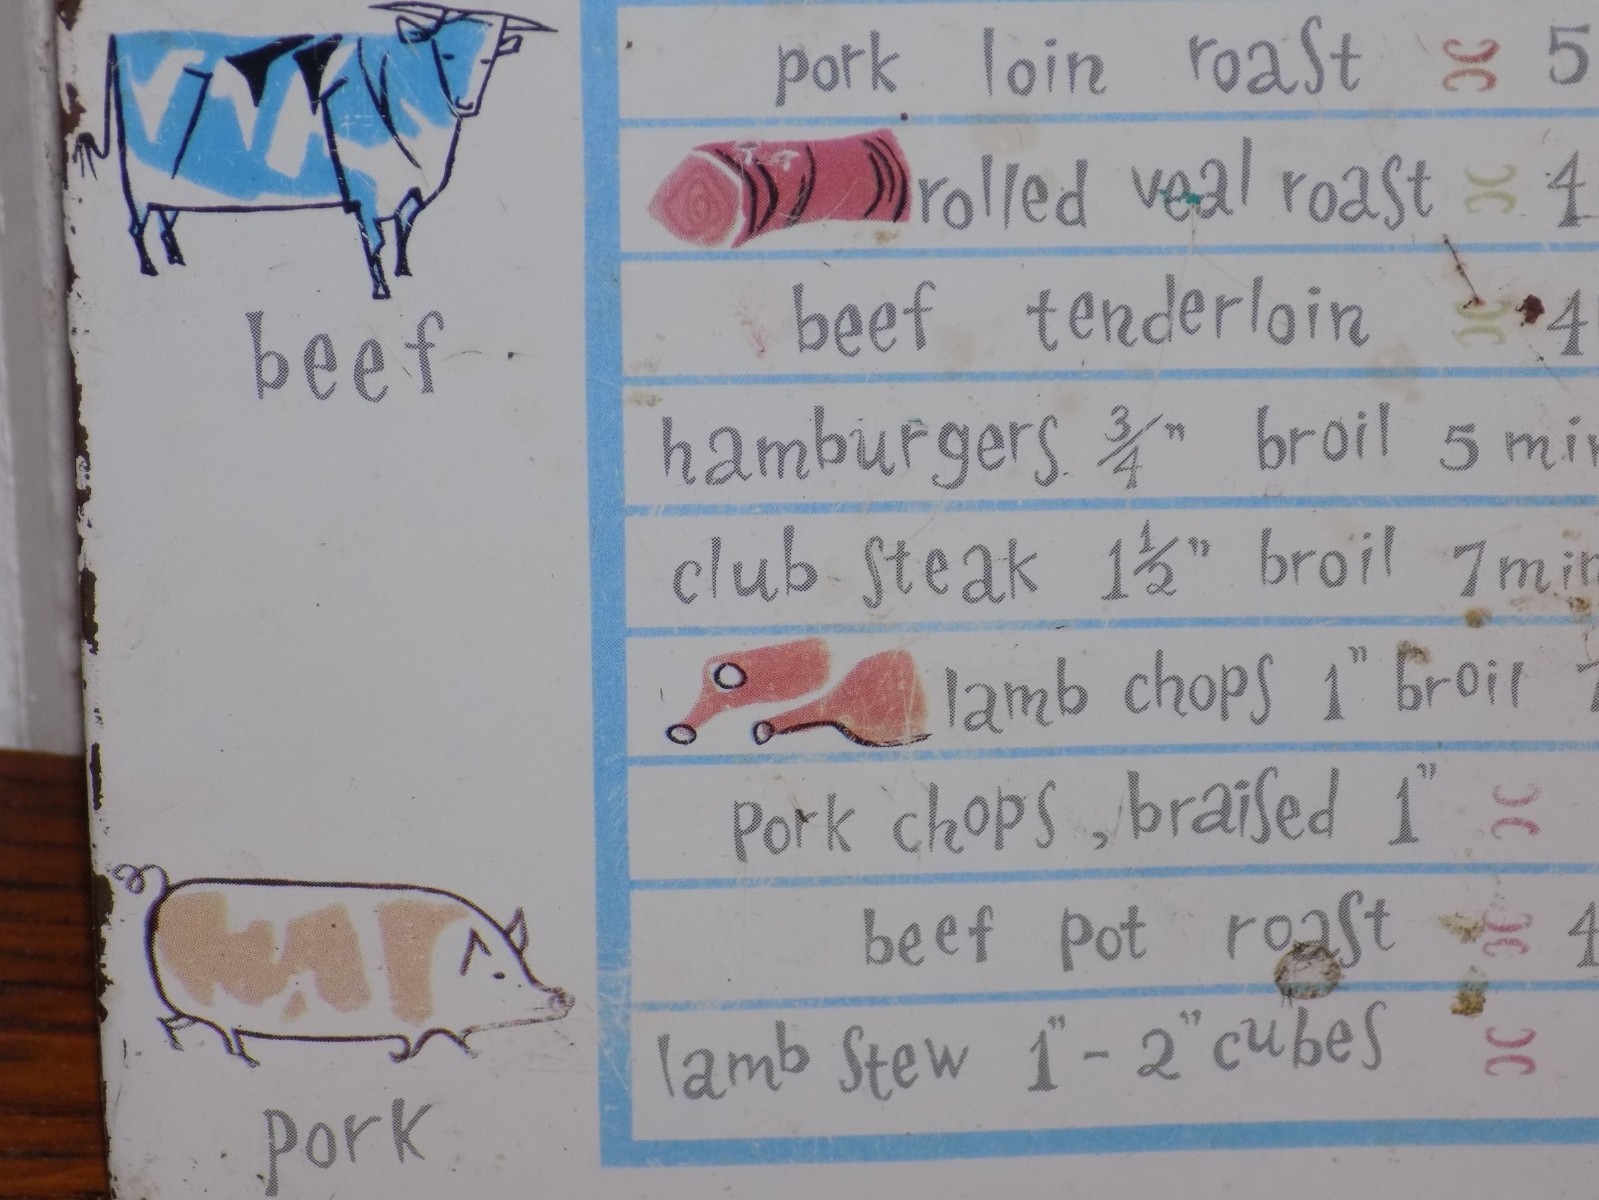 pork loin roast 5
rolled veal roast 4
beef tenderloin 4
beef
hamburgers 3/4" broil 5 min
club steak 1 1/2" broil 7 min
lamb chops 1" broil 7
pork chops, braised 1"
beef pot roast 4
lamb stew 1" - 2" cubes
pork